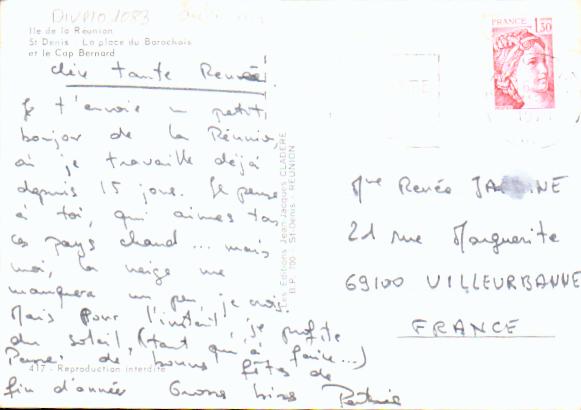 DIVPIO 1083
Ile de la Réunion
St Denis La place du Barachois
et le Cap Bernard
FRANCE
1,30
tante Renée
Je t'envoie un petit
bonjour de la Réunion,
où je travaille déjà
depuis 15 jours. Je pense
à toi, qui aimes tous
ces pays chaud... mais
moi, la neige me
manquera un peu, je crois.
Mais pour l'instant, je profite
du soleil, (tant qu'à faire...)
de bonnes fêtes de
417 - Reproduction interdite
fin d'année Gross bises
Les Editions Jean-Jacques CLADÈRE
B.P. 700 St-Denis - RÉUNION
Mme Renée
21 rue Marguerite
69100 VILLEURBANNE
FRANCE